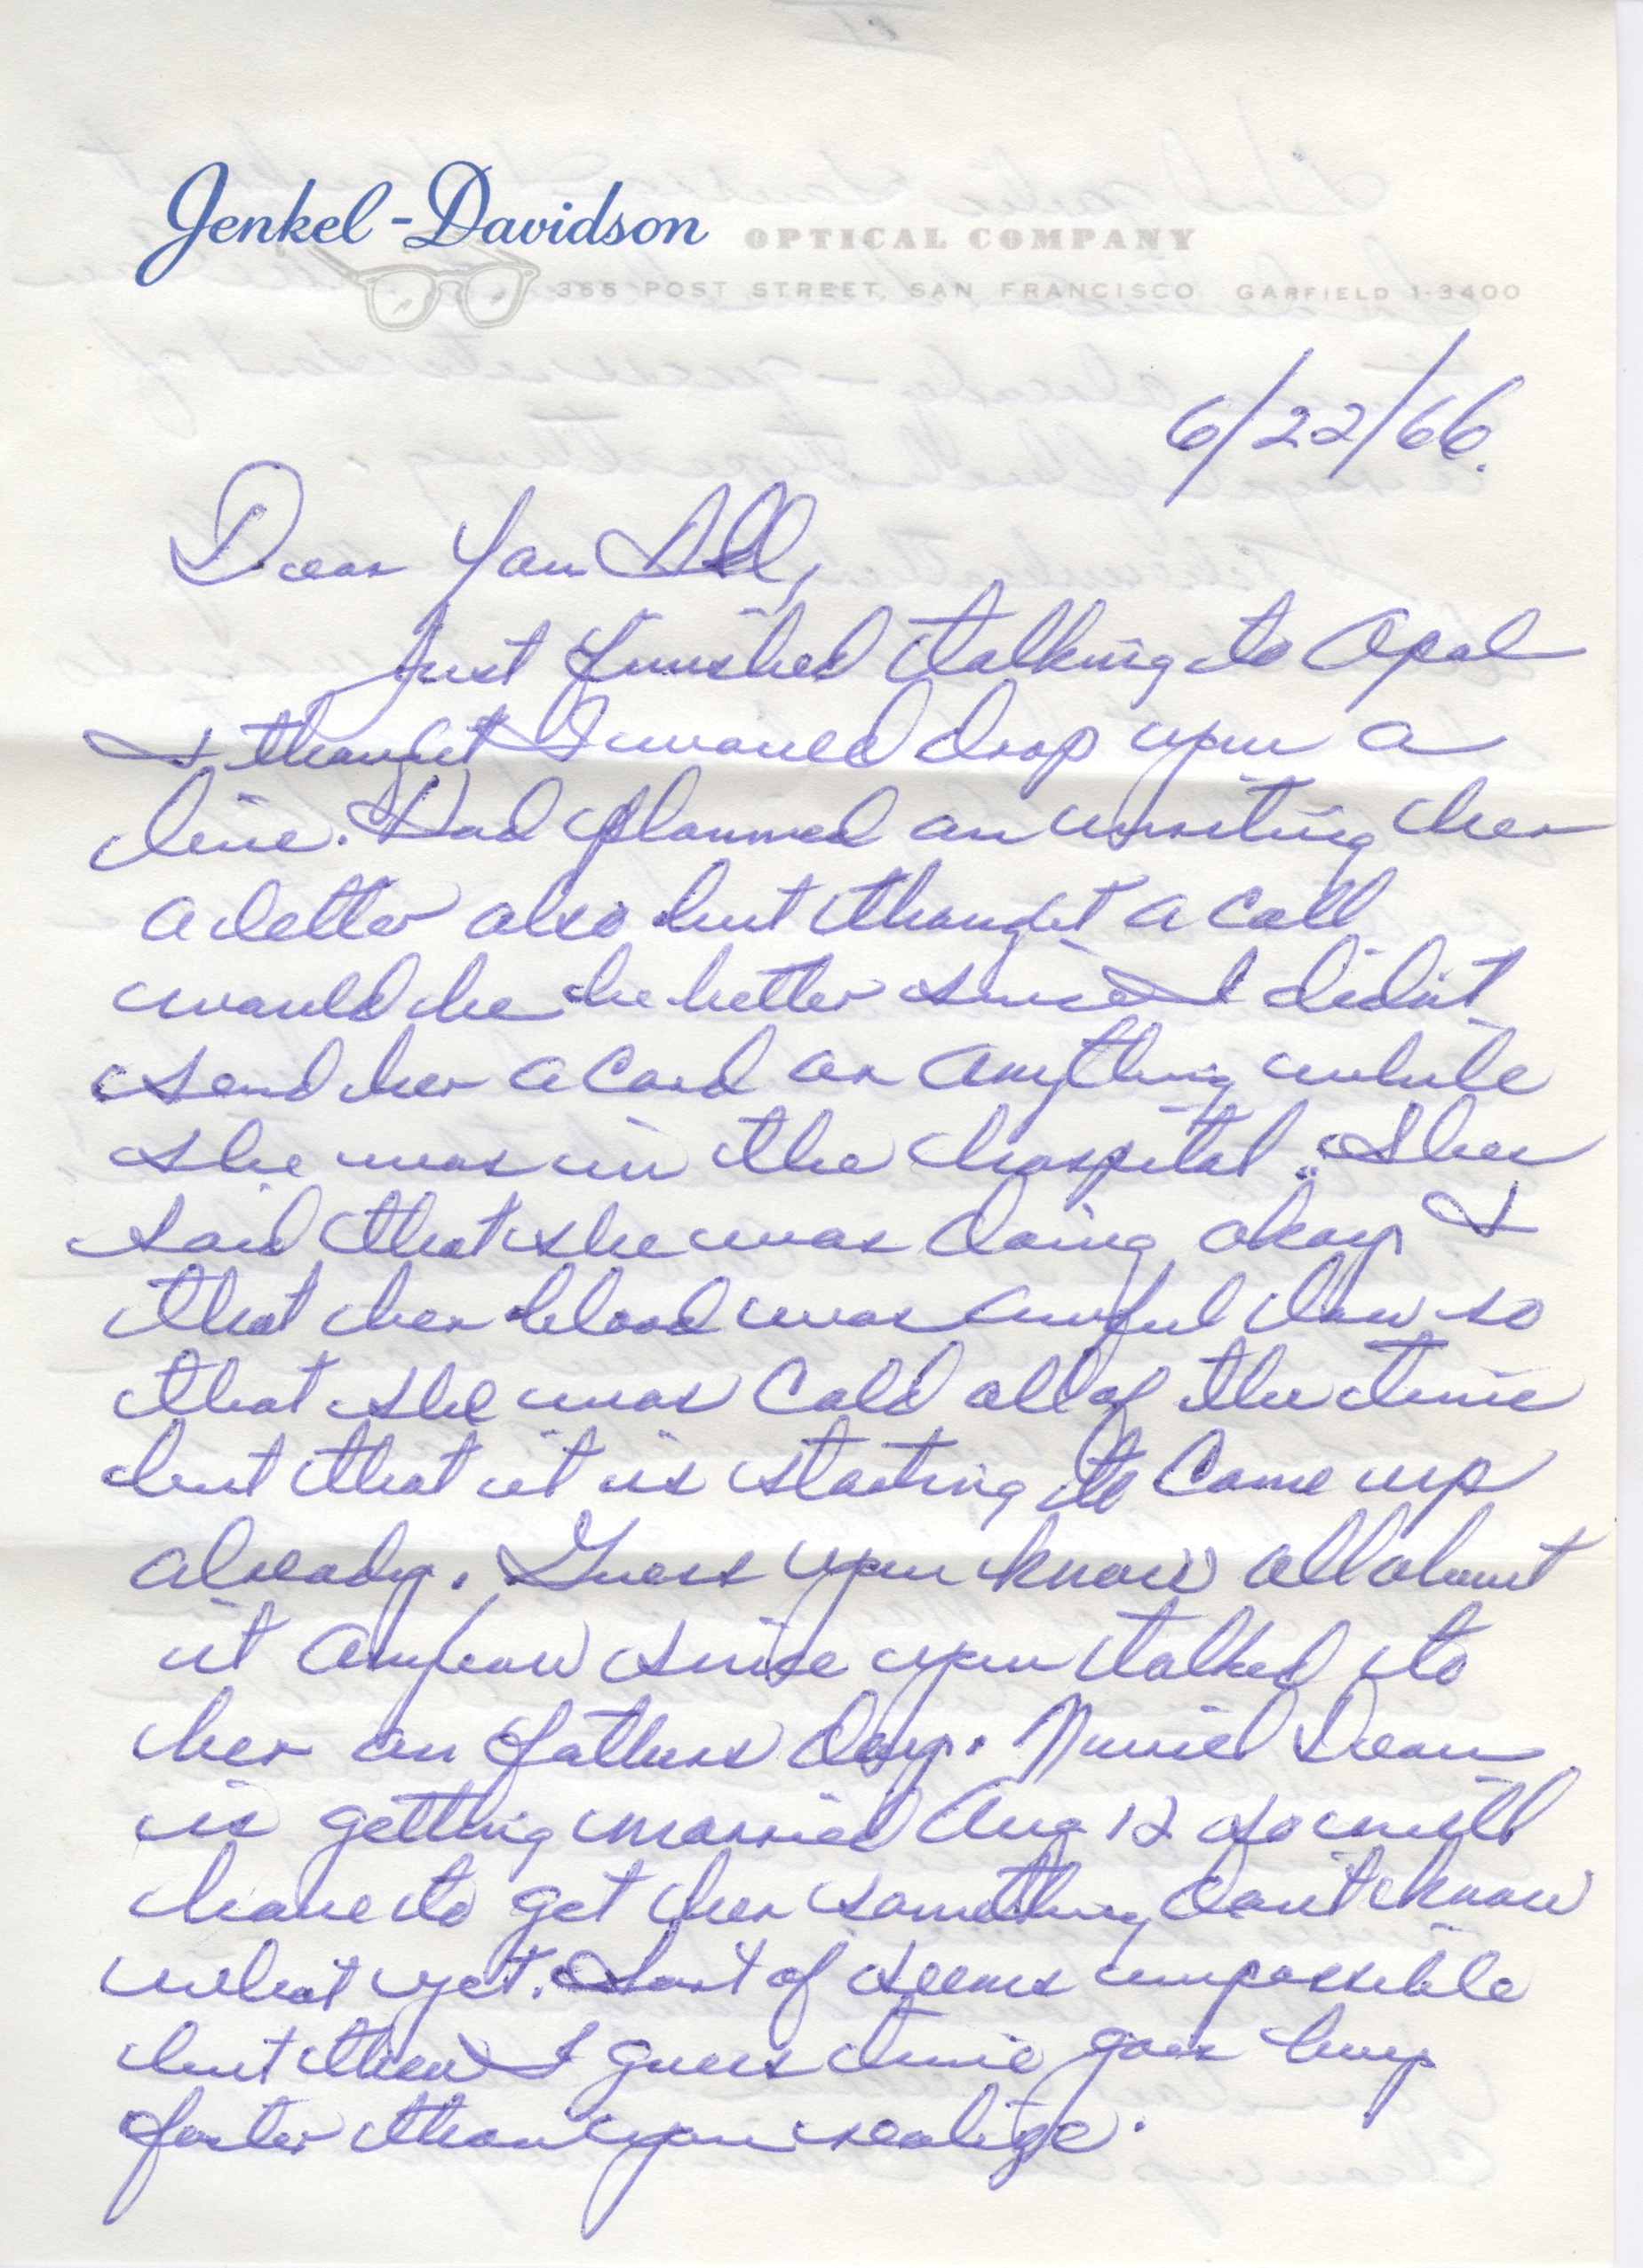 Jenkel-Davidson OPTICAL COMPANY
366 POST STREET, SAN FRANCISCO GARFIELD 1-3400
6/22/66.
Dear You All,
Just finished talking to Opal
& thought I would drop you a
line. Had planned on writing her
a letter also but thought a call
would be be better since I didn't
send her a card or anything while
she was in the hospital. She
said that she was doing okay &
that her blood was awful low so
that she was cold all of the time
but that it is starting to come up
already. Guess you know all about
it anyhow since you talked to
her on fathers day. Dean
is getting married Aug 12 so will
have to get her something don't know
what yet. Sort of seems impossible
but then I guess time goes by
faster than you realize.